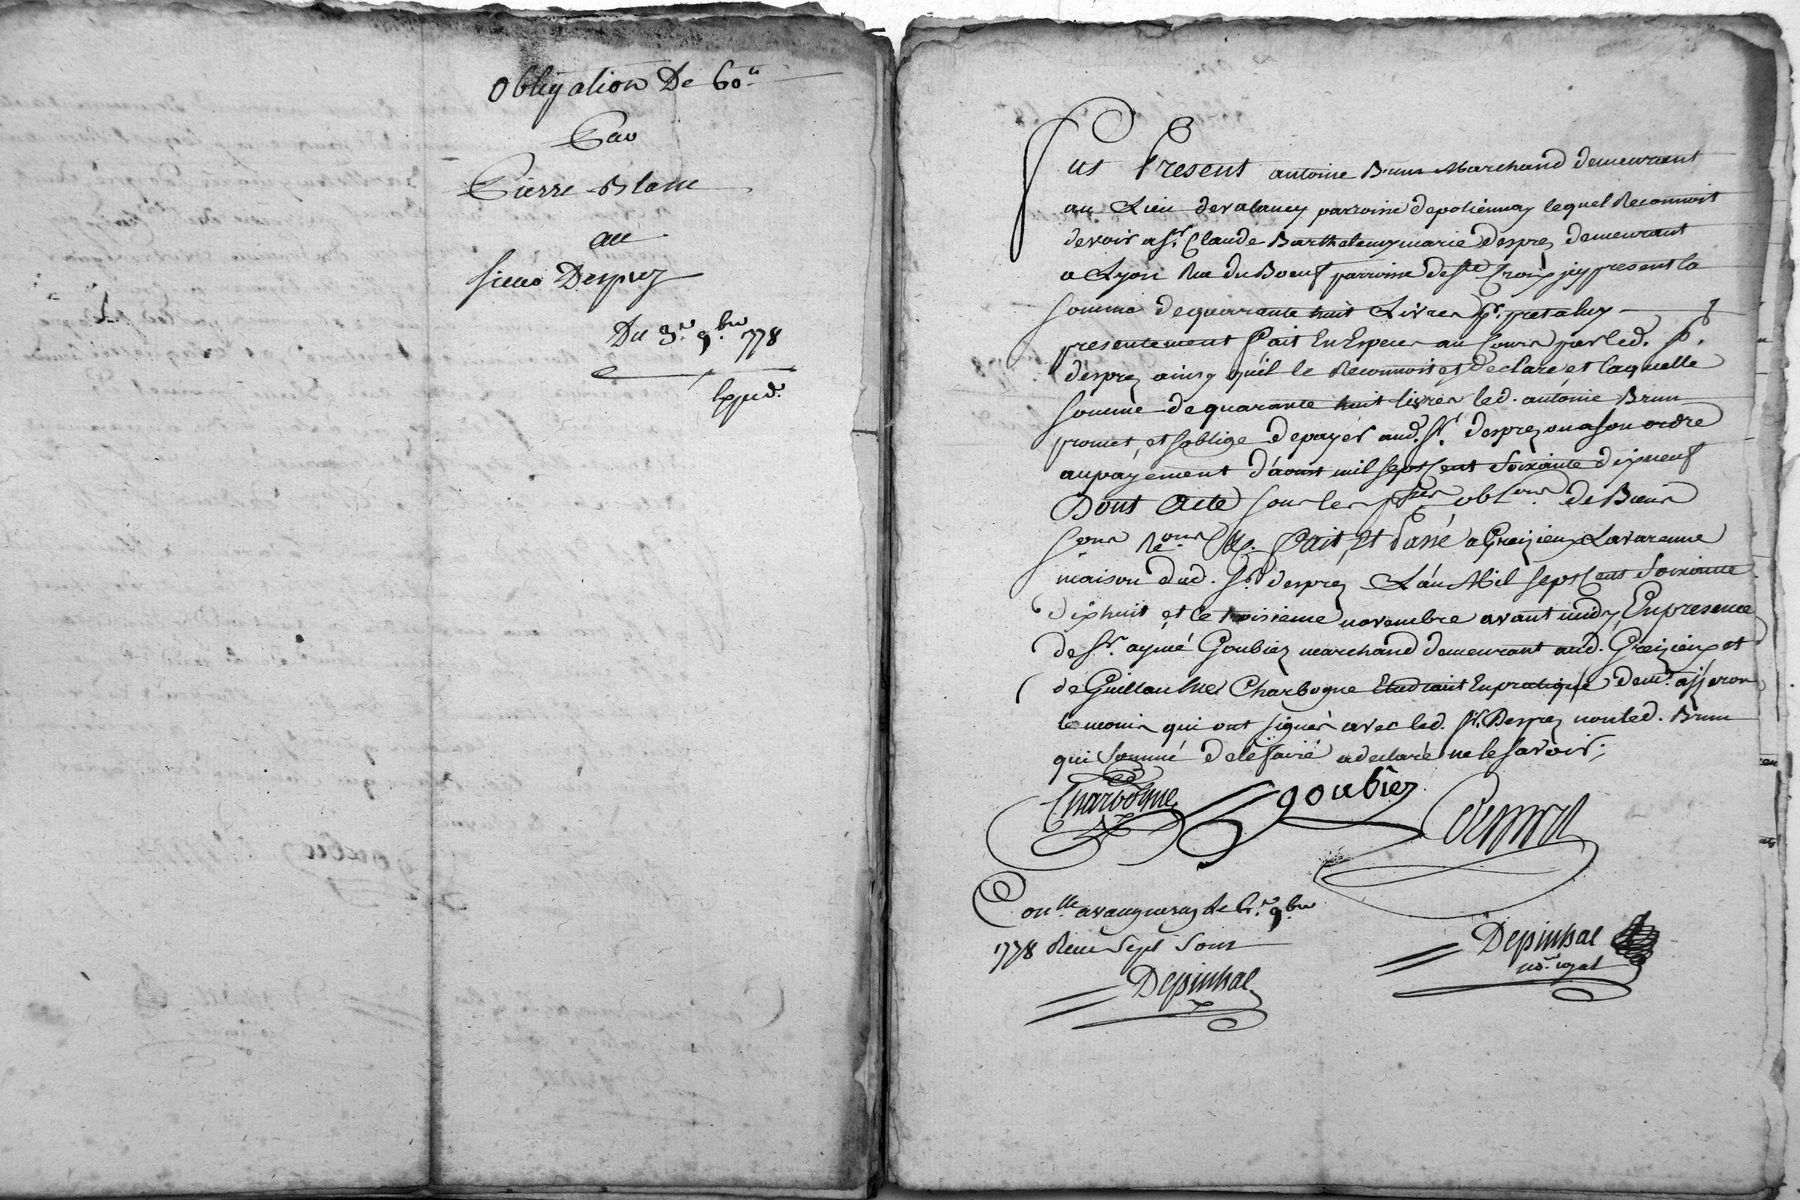 Obligation De 60ᵗᵗ
Par
Pierre Blanc
au
sieur Desprez
Du 3.ᵉ 9.ᵇʳᵉ 1778
Expéd.
fut Present antoine Brun Marchand demeurant
au Lieu de valancy parroisse depoliennay lequel Reconnoit
devoir a Sʳ. Claude Barthelemy marie desprez demeurant
a Lyon Rue du Boeuf parroisse de Ste Croix jcy present la
somme de quarante huit Livres pʳ. pret a luy
presentement fait En Especes au Cours par led. Sʳ.
desprez ainsy qu'il le Reconnoit et declare et laquelle
somme de quarante huit livres led. antoine Brun
promet et soblige depayer aud. Sʳ. desprez ou a son ordre
au payement d'aoust mil sept Cent Soixante dix neuf
Dont Acte sous les obl. de Biens
sous fait Et Passé a Greizieu Lavarenne
maison dud. Sʳ desprez L'an Mil sept Cent Soixante
dixhuit et le troisieme novembre avant midy, En presence
de Sʳ. aymé Goubiez marchand demeurant aud. Greizieu et
de Guillaulme Charbogne Etudiant En pratique
temoins qui ont signés avec led. Sʳ. Desprez non led. Brun
qui Sommé de le faire a declaré ne le savoir;
Charbogne goubiez Desprez
Conˡˡᵉ a vaugneray le 6.ᵉ 9.ᵇʳᵉ
1778 Reçu Sept Sous
Depinhac
Depinhac
noʳᵉ royal